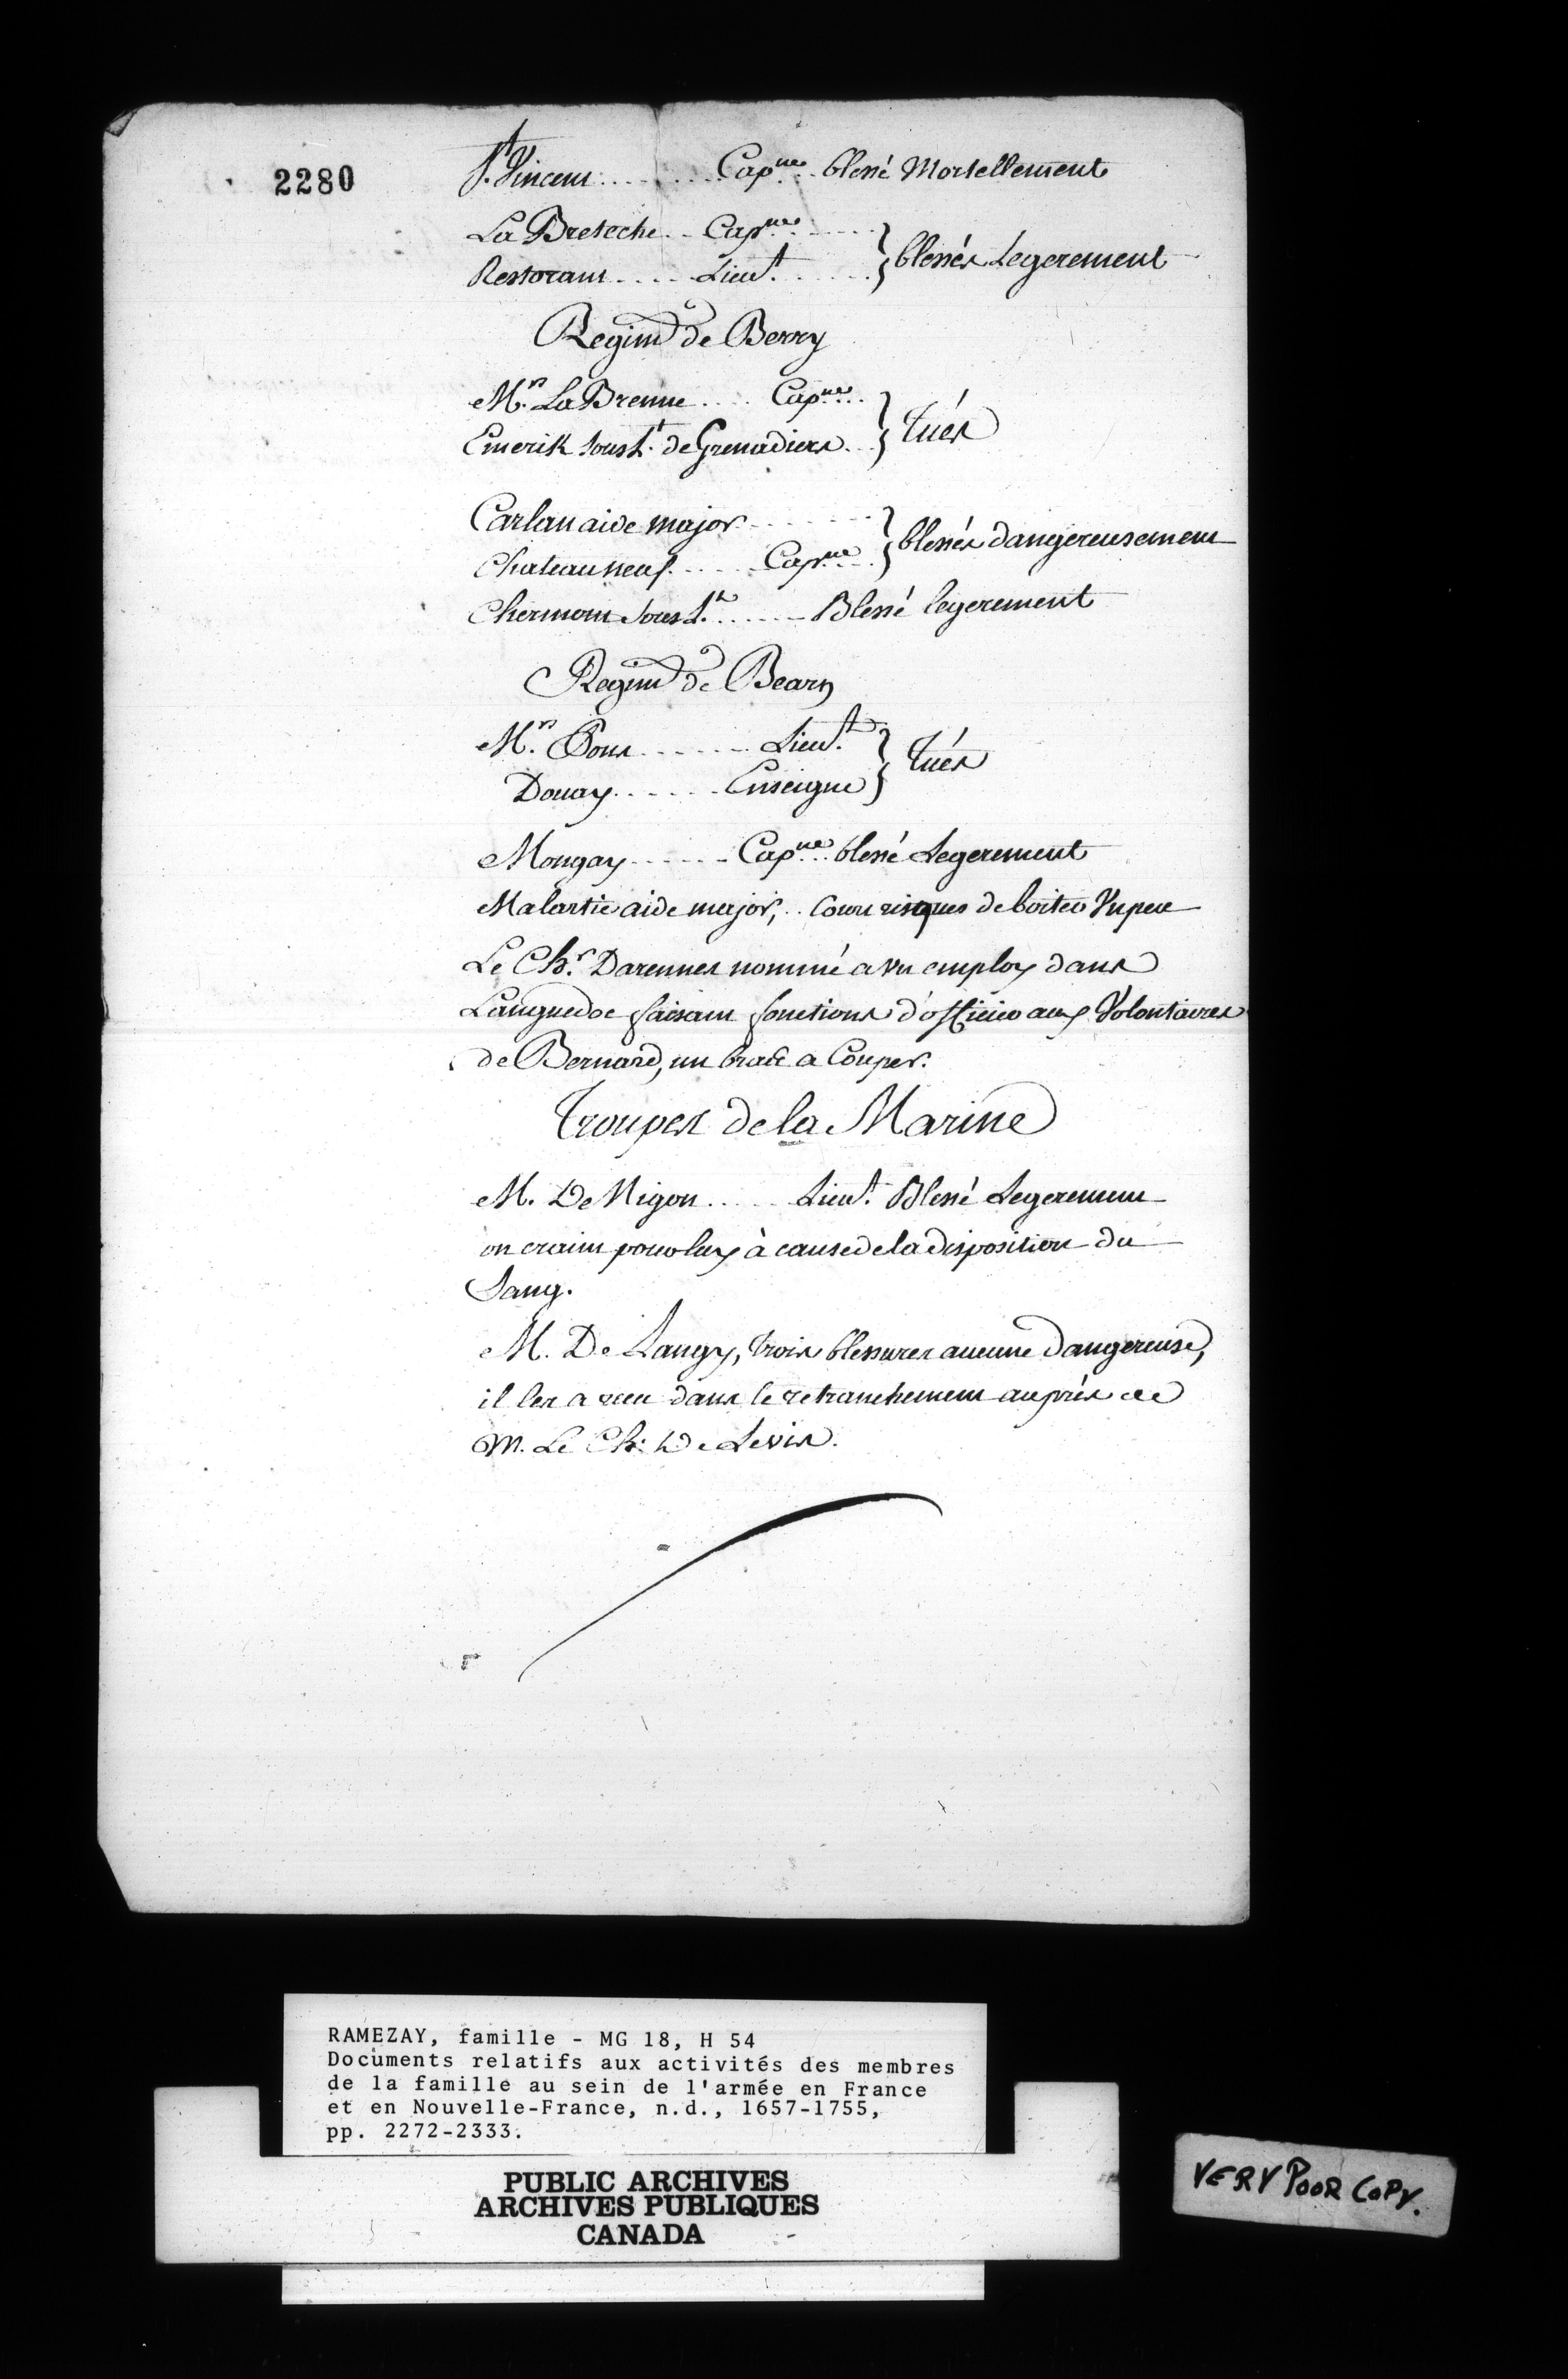 2280
St. Vincent .......... Capne. blessé Mortellement
La Breteche .. Capne. .....
Restorant .... Lieut. ..... } blessés Legerement
Regimt de Berry
Mrs. La Brenne .... Capne. ..
Emerik sous Lt. de Grenadiers .. } tués
Carlan aide major ........
Chateauneuf ..... Capne. .. } blessés dangereusement
Chermont sous Lt. ...... Blessé legerement
Regimt de Bearn
Mrs. Pons ....... Lieut.
Douay ...... Enseigne } tués
Mongay ...... Capne. .. blessé Legerement
Malartic aide major, .. Court risques de boiter Un peu
Le Chr. Darennes nommé a un employ dans
Languedoc faisant fonctions d'officier aux Volontaires
de Bernard, un bras a Couper.
Troupes de la Marine
M. De Nigon ..... Lieut. Blessé Legerement
on craint pour luy à cause de la disposition du
Sang.
M. De Langy, trois blessures aucune dangereuse,
il les a receu dans le retranchement auprès de
M. Le Ch: De Levis.
RAMEZAY, famille - MG 18, H 54
Documents relatifs aux activités des membres
de la famille au sein de l'armée en France
et en Nouvelle-France, n.d., 1657-1755,
pp. 2272-2333.
PUBLIC ARCHIVES
ARCHIVES PUBLIQUES
CANADA
VERY POOR COPY.